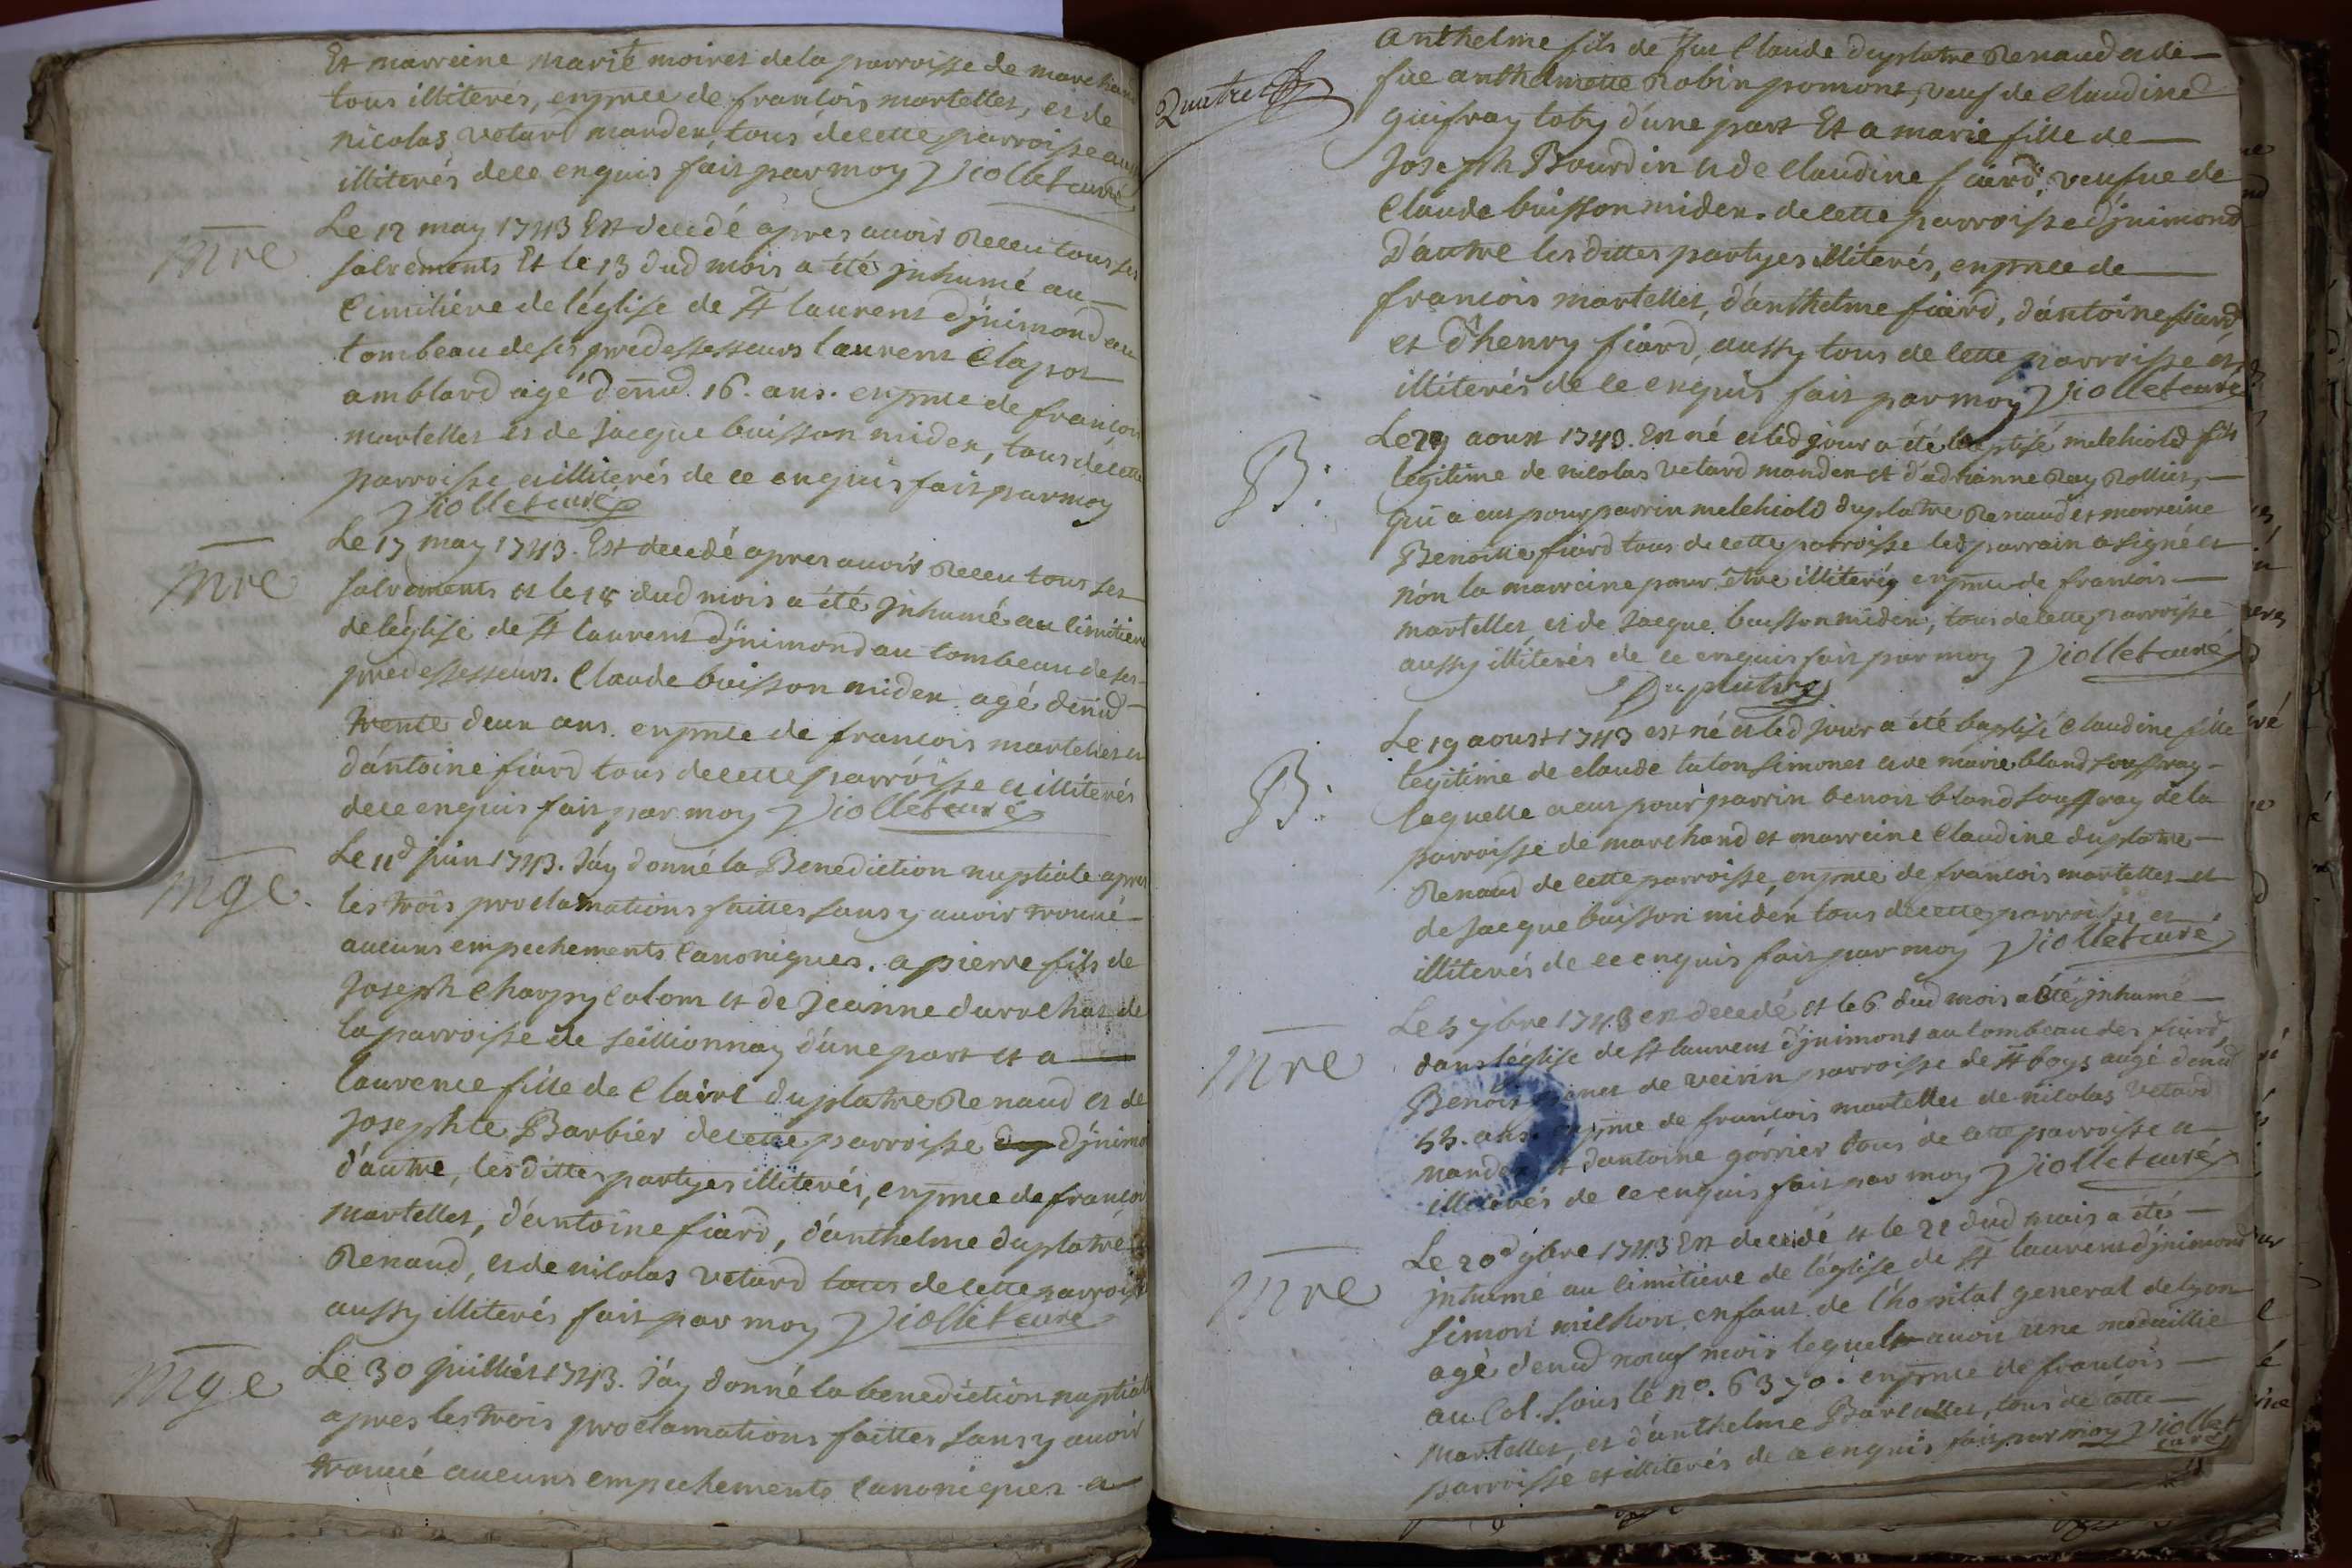 Et marreine marie moiret de la parroisse de marchand
tous illiterés, enpnce de francois martellet, et de
nicolas vetard manden tous de cette parroisse aussy
illiterés de ce enquis fait par moy Viollet curé
Mre
Le 12 may 1743 Est decedé apres avoir Receu tous ses
sacrements Et le 13 dud mois a été jnhumé au
Cimitiere de léglise de St laurent djnimond au
tombeau de ses predessesseurs laurent Clapot
amblard agé denvd. 16. ans. enpnce de francois
martellet et de Jacque buisson miden, tous de cette
parroisse et illiterés de ce enquis fait par moy
Viollet curé
Mre
Le 17 may 1743. Est decedé apres avoir Receu tous ses
sacrements et le 18 dud mois a été jnhumé au cimitiere
de léglise de St laurent djnimond au tombeau de ses
predessesseurs. Claude buisson miden agé denvd
trente deux ans. enpnce de francois martellet et
dántoine fiard tous de cette parroisse et illiterés
de ce enquis fait par moy Viollet curé
Mge.
Le 11d juin 1743. Jáy donné la Benediction nuptiale apres
les trois proclamations faittes sans y avoir trouvé
aucuns empechements Canoniques. a pierre fils de
Joseph Charpy Colom et de Jeanne durochat de
la parroisse de Seillionnay dúne part et a
laurence fille de Claire duplatre Renaud et de
Josephte Barbier de cette parroisse djnimond
dáutre, les dittes partyes illiterés, enpnce de francois
martellet, dántoine fiard, dánthelme duplatre
Renaud, et de nicolas vetard tous de cette parroisse
aussy illiterés fait par moy Viollet curé
Mge
Le 30 juilliet 1743. jáy donné la benediction nuptiale
apres les trois proclamations faittes sans y avoir
trouvé aucuns empechements Canoniques a
anthelme fils de fut Claude duplatre Renaud et de
fue anthelmette Robin pomont, veuf de Claudine
guifray toby dúne part Et a marie fille de
Joseph Bourdin et de Claudine fiard, veufve de
Claude buisson miden. de cette parroisse djnimond
Dáutre les dittes partyes illiterés, enpnce de
francois martellet, dánthelme fiard, dántoine fiard
et d'henry fiard, aussy tous de cette parroisse et
illiterés de ce enquis fait par moy Viollet curé
B.
Le aoust 1743. Est né et led jour a été baptisé melchiold fils
legitime de nicolas vetard manden et dádrianne Ray Rollier,
qui a eut pour parrin melchiold duplatre Renaud et marreine
Benoitte fiard tous de cette parroisse led parrain a signé et
nón la marreine pour être illiterés enpnce de francois
martellet et de Jacque buisson miden, tous de cette parroisse
aussy illiterés de ce enquis fait par moy Viollet curé
Duplatre
B.
Le 19 aoust 1743 est né et led jour a été baptisé Claudine fille
legitime de claude tuton simonet et de marie bland souffray
laquelle a eut pour parrin benoit bland souffray de la
parroisse de marchand et marreine Claudine duplatre
Renaud de cette parroisse, enpnce de francois martellet et
de Jacque buisson miden tous de cette parroisse et
illiterés de ce enquis fait par moy Viollet curé
Mre
Le 5 7bre 1743 est decedé et le 6 dud mois a été jnhumé
dans léglise de St laurent djnimont au tombeau des fiard,
Benoit de veirin parroisse de St boys augé denvd
55. ans. enpnce de francois martellet de nicolas vetard
manden et dantoine gorrier tous de cette parroisse et
illiterés de ce enquis fait par moy Viollet curé
Mre
Le 20d 9bre 1743 Est decedé et le 21 dud mois a été
jnhumé au Cimitiere de léglise de St laurent djnimond
Simon milhon enfant de lhopital general de lyon
agé denvd neuf mois lequel avoit une medaillie
au Col. sous le no. 6370. enpnce de francois
martellet, et dánthelme Barcellet, tous de cette
parroisse et illiterés de ce enquis fait par moy Viollet
curé